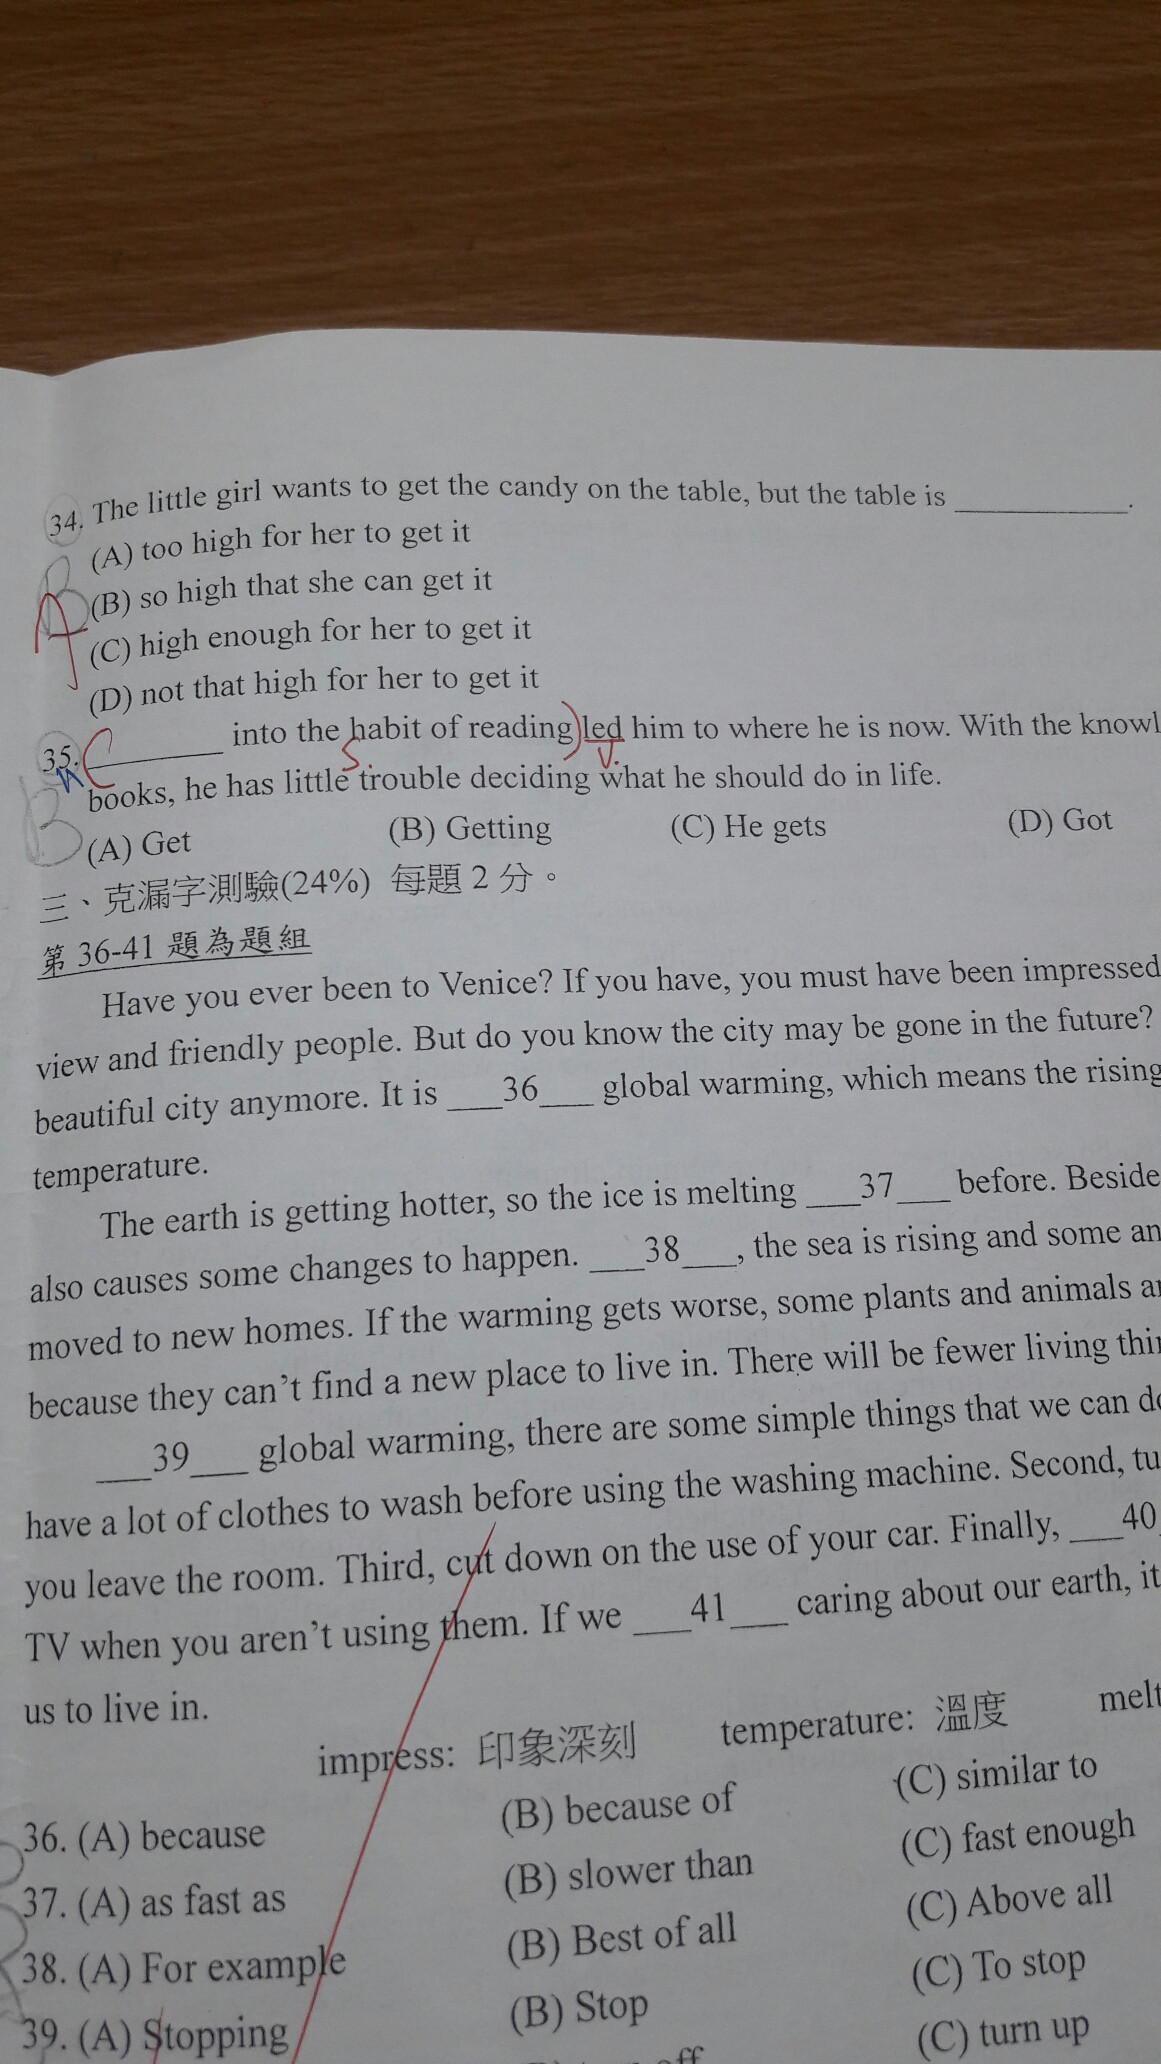 34. The little girl wants to get the candy on the table, but the table is ____________.
(A) too high for her to get it
B
A
(B) so high that she can get it
(C) high enough for her to get it
(D) not that high for her to get it
35. __________ into the habit of reading led him to where he is now. With the knowl
S V.
n
books, he has little trouble deciding what he should do in life.
B
(A) Get (B) Getting (C) He gets (D) Got
三、克漏字測驗(24%) 每題 2 分。
第 36-41 題為題組
Have you ever been to Venice? If you have, you must have been impressed
view and friendly people. But do you know the city may be gone in the future?
beautiful city anymore. It is ___36___ global warming, which means the rising
temperature.
The earth is getting hotter, so the ice is melting ___37___ before. Beside
also causes some changes to happen. ___38___, the sea is rising and some an
moved to new homes. If the warming gets worse, some plants and animals a
because they can't find a new place to live in. There will be fewer living thin
___39___ global warming, there are some simple things that we can do
have a lot of clothes to wash before using the washing machine. Second, tu
you leave the room. Third, cut down on the use of your car. Finally, ___40
TV when you aren't using them. If we ___41___ caring about our earth, it
us to live in.
impress: 印象深刻 temperature: 溫度 melt
36. (A) because (B) because of (C) similar to
37. (A) as fast as (B) slower than (C) fast enough
38. (A) For example (B) Best of all (C) Above all
39. (A) Stopping (B) Stop (C) To stop
(C) turn up